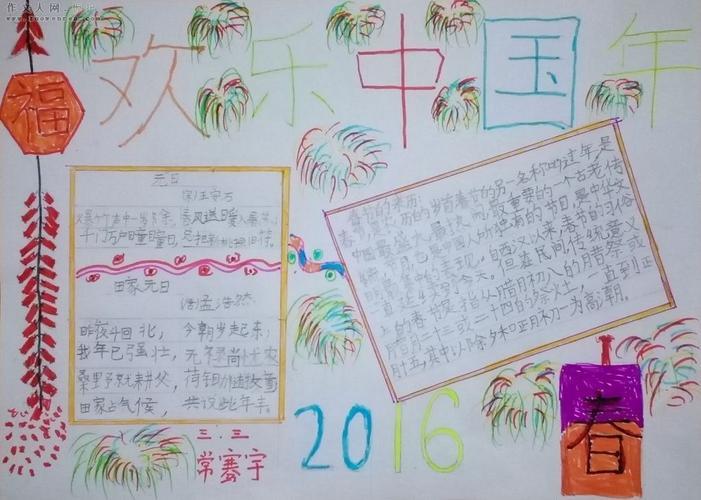 作文人网
欢乐中国年
福
元日
宋王安石
爆竹声中一岁除,春风送暖入屠苏。
千门万户曈曈日,总把新桃换旧符。
田家元日
孟浩然
昨夜斗回北,今朝岁起东;
我年已强壮,无禄尚忧农
桑野就耕父,荷锄随牧童
田家占气候,共说此年丰。
春节的来历
春节是农历的岁首春节的另一名称叫过年,是
中国最盛大、最热闹、最重要的一个古老传
统节日,也是中国人所独有的节日。是中华文
明最集中的表现。自西汉以来,春节的习俗
一直延续到今天。但在民间传统意义
上的春节是指从腊月初八的腊祭或
腊月二十三或二十四的祭灶,一直到正
月十五,其中以除夕和正月初一为高潮。
三.三
常骞宇
2016
春